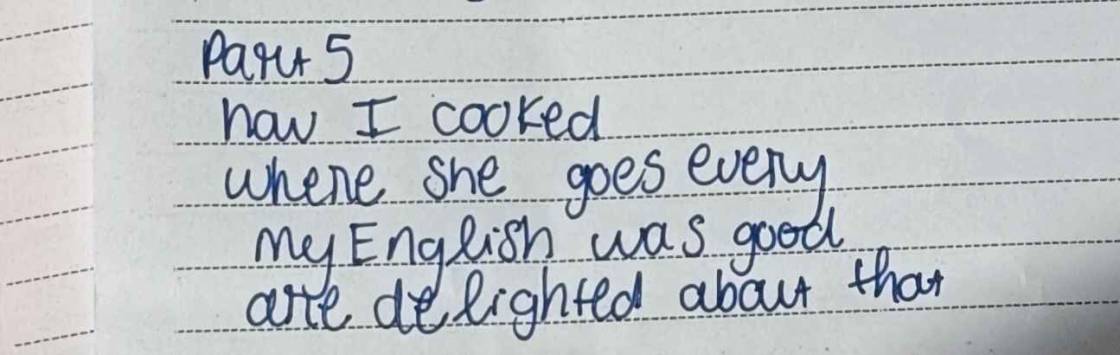 Part 5
how I cooked
where she goes every
my English was good
are delighted about that